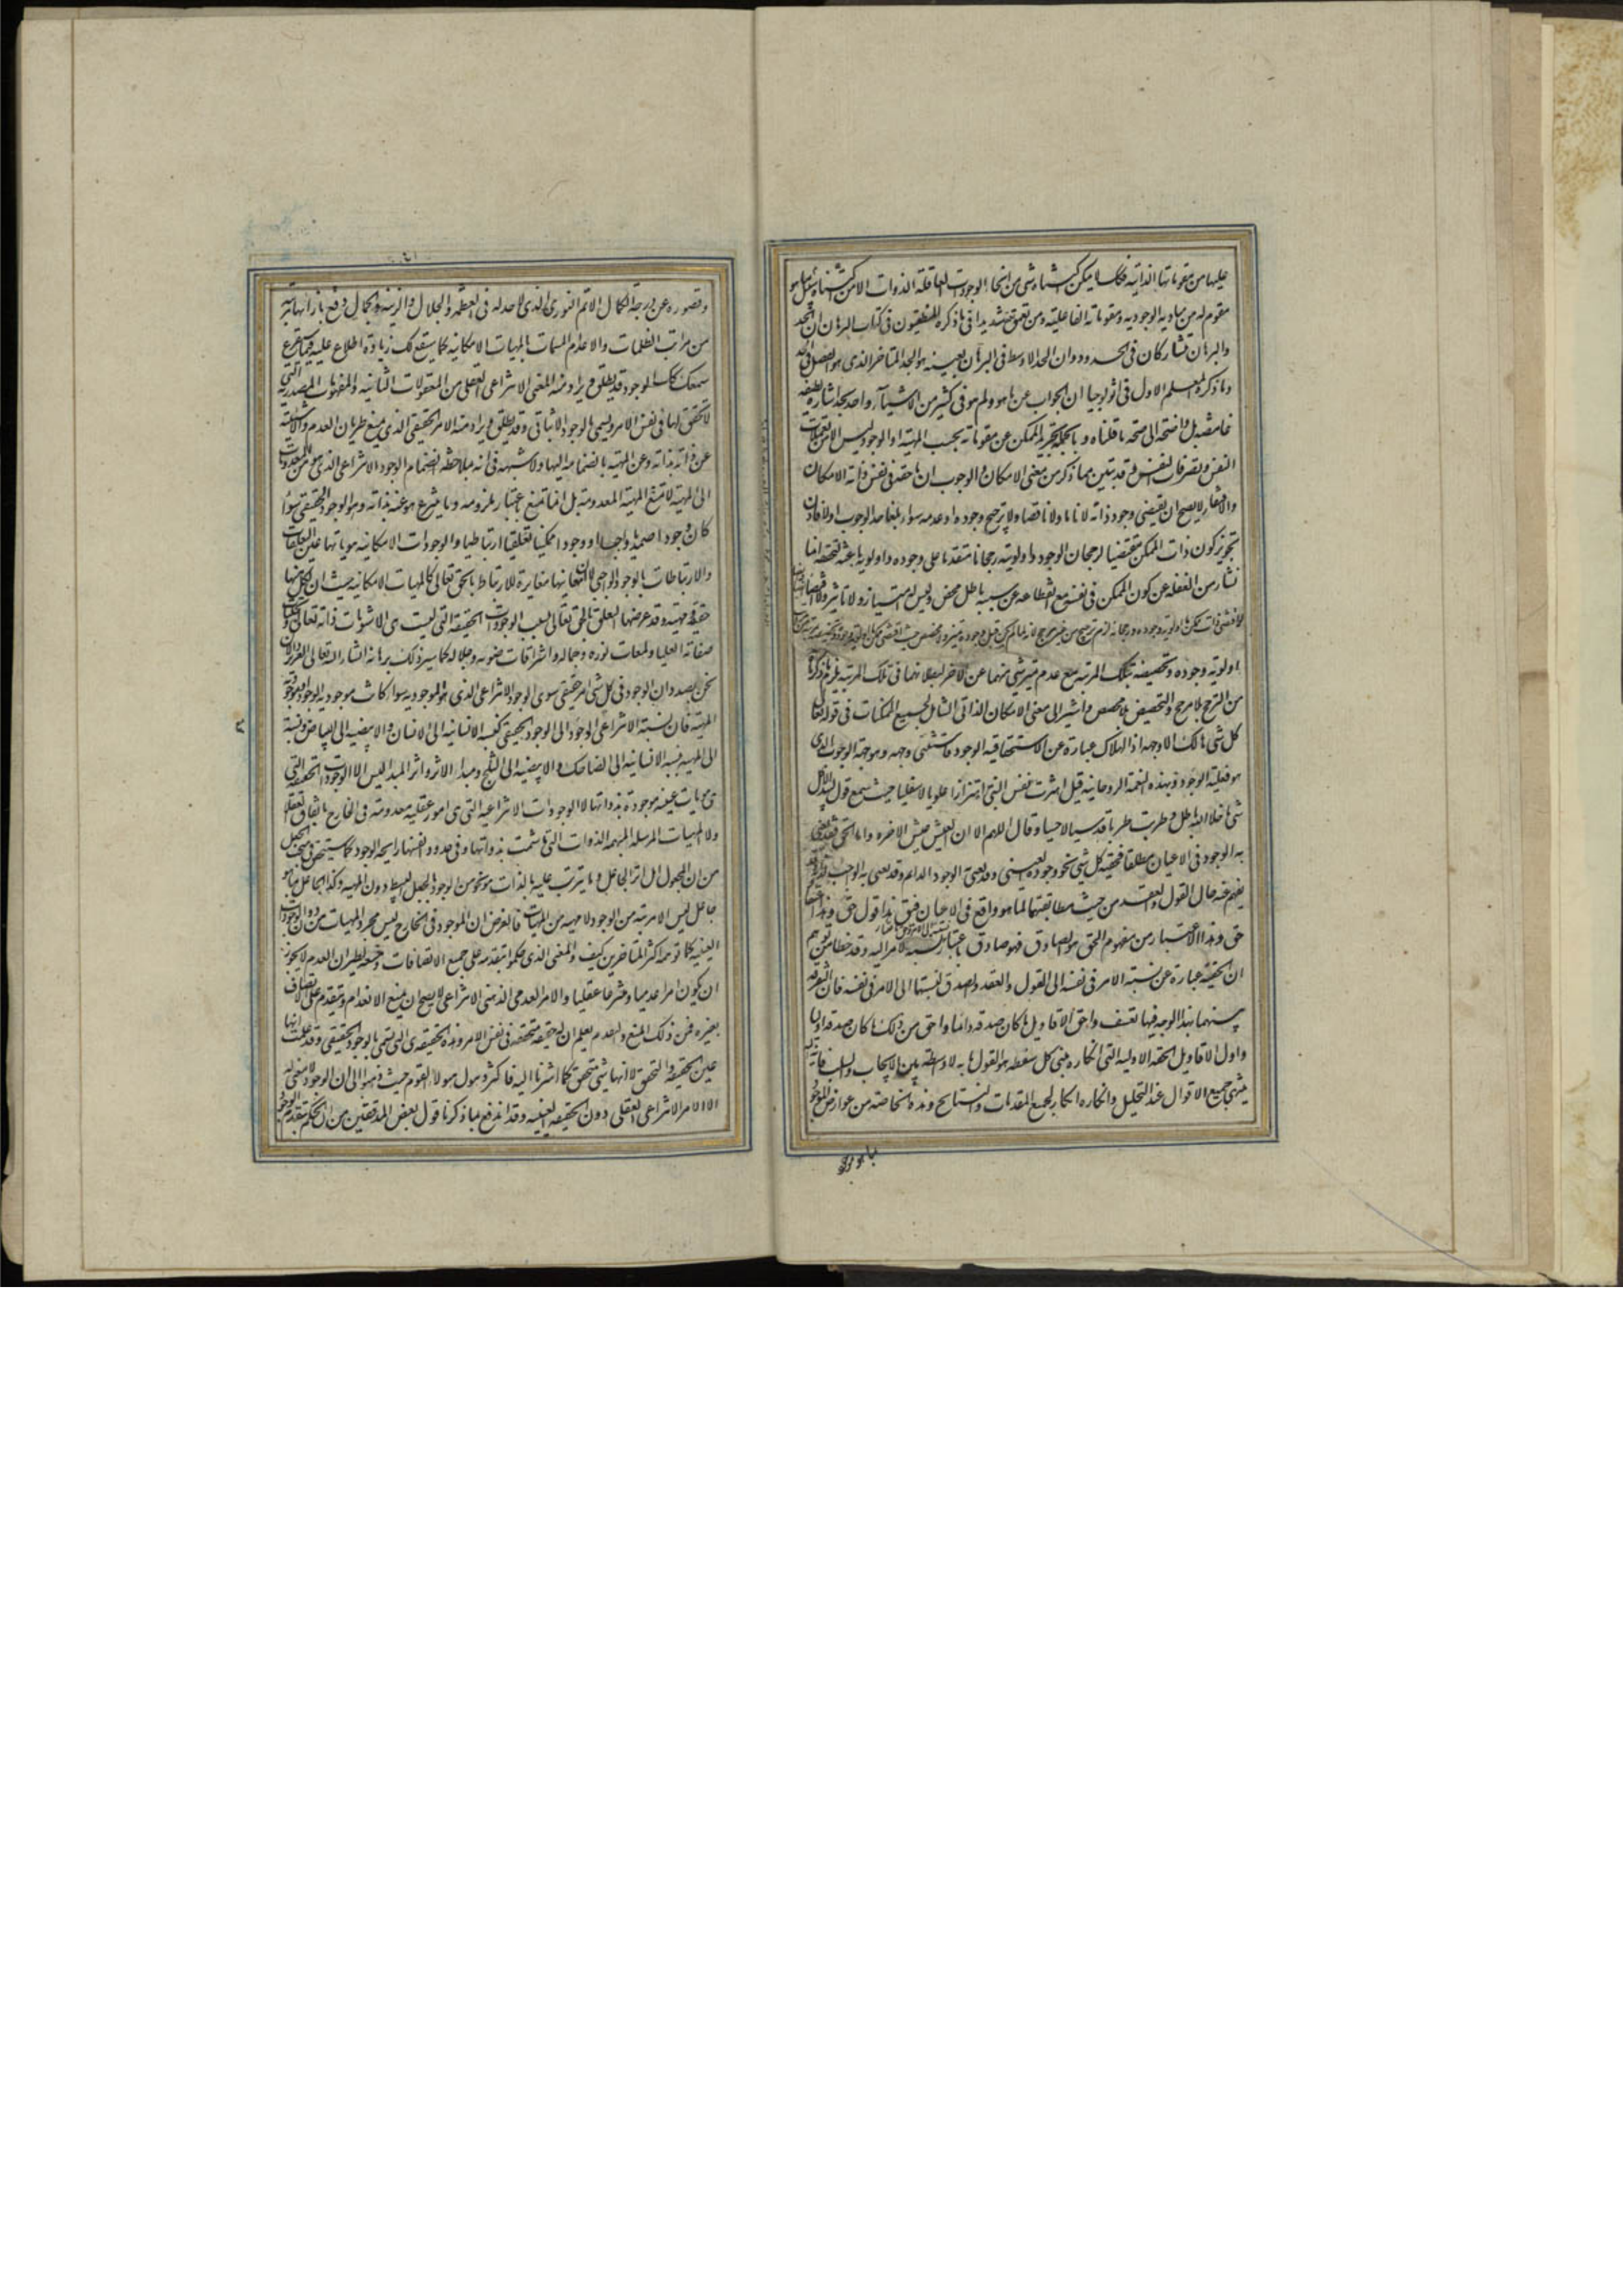 عليها من مقوماتها الذاتية فكذلك لا يمكن اكتناه شيء من انحاء الوجودات الفاقة الذوات الا من اكتناه سبيل ما هو
مقوم له من مباديه الوجوديه ومقوماته الفاعليه ومن تعمق تعمقا شديدا فيما ذكره المنطقيون في كتاب البرهان ان الحد
والبرهان متشاركان في الحدود وان الحد الاوسط في البرهان بعينه هو الحد المتاخر الذي هو الفصل في الحد
وما ذكره المعلم الاول في اثولوجيا ان الجواب عن ما هو ولم هو في كثير من الاشياء واحد يجد اشارة لطيفه
غامضه بل واضحة الى صحة ما قلناه و بالجملة تجريد الممكن عن مقوماته بحسب المهية او الوجود ليس الا من تعملات
النفس وتصرفات النفس قد تبين مما ذكر من معنى الامكان والوجوب ان ما حقه في نفس ذاته الامكان
والافتقار لا يصح ان يقتضي وجود ذاته لا تاما ولا ناقصا ولا ترجيح وجوده او عدمه سواء بلغا حد الوجوب او لا فاذن
تجويز كون ذات الممكن مقتضيا لرجحان الوجود او اولويته رجحانا متقدما على وجوده و اولوية باعثة لتحققه انما
نشأ من الغفلة عن كون الممكن في نفسه مع انقطاعه عن سببه باطل محض وليس له امتياز ولا تاثير ولا اقتضاء
اولوية وجوده وتخصيصه بتلك المرتبة مع عدم تميز شيء منهما عن الاخر لبطلانهما في تلك المرتبة يلزم ما ذكرنا
من الترجيح بلا مرجح والتخصيص بلا مخصص واشير الى معنى الامكان الذاتي الشامل لجميع الممكنات في قوله تعالى
كل شيء هالك الا وجهه اذ الهلاك عبارة عن لا استحقاقية الوجود فاستثنى وجهه وهو جهة الوجوب الذي
هو فعلية الوجود وبهذه النغمة الروحانية قيل اهتزت نفس النبي اهتزازا علويا لا سفليا حيث سمع قول لبيد الا كل
شيء ما خلا الله باطل وطربت طربا قدسيا لا حسيا وقال اللهم الا ان العيش عيش الاخرة واما الحق فقد يعنى
به الوجود في الاعيان مطلقا فحقية كل شيء نحو وجوده العيني وقد يعنى به الوجود الدائم وقد يعنى به الواجب لذاته وقد
يفهم عنه حال القول والعقد من حيث مطابقتهما لما هو واقع في الاعيان فيق هذا قول حق وهذا اعتقاد
حق وهذا الاعتبار من مفهوم الحق هو الصادق فهو صادق باعتبار نسبته الى الامر وقد خطأ من توهم
ان الحقية عبارة عن نسبة الامر في نفسه الى القول والعقد والصدق نسبتهما الى الامر في نفسه فان التفرقة
بينهما بهذا الوجه فيها تعسف واحق الاقاويل ما كان صدقه دائما واحق من ذلك ما كان صدقه اوليا
واول الاقاويل الحقة الاولية التي انكاره مبنى كل سفسطة هو القول بانه لا واسطة بين الايجاب والسلب فانه اليه
ينتهي جميع الاقوال عند التحليل وانكاره انكار لجميع المقدمات والنتايج وهذه الخاصة من عوارض الموجود
بما هو موجود
وقصوره عن درجة الكمال الاتم النوري الذي لا حد له في العظمة والجلال والزينة والجمال وقع بازائها مرتبة
من مراتب الظلمات والاعدام المسمات بالمهيات الامكانية كما سيقع لك زيادة اطلاع عليه فيما يقرع
سمعك كان الوجود قد يطلق ويراد منه المعنى الانتزاعي العقلي من المعقولات الثانية والمفهومات المصدرية التي
لا تحقق لها في نفس الامر ويسمى بالوجود الاثباتي وقد يطلق ويراد منه الامر الحقيقي الذي يمنع طريان العدم واللاشيئية
عن ذاته بذاته وعن المهية بانضمامه اليها ولا شبهة في انه بملاحظة انضمام الوجود الانتزاعي الذي هو من المعدومات
الى المهية لا تمنع المهية المعدومة بل انما تمنع باعتبار ملزومه وما ينتزع هو عنه بذاته وهو الوجود الحقيقي سواء
كان وجودا صمديا واجبا او وجودا ممكنيا تعلقيا ارتباطيا والوجودات الامكانية هوياتها عين التعلقات
والارتباطات بالوجود الواجبي لا ان معانيها مغايرة للارتباط بالحق تعالى كالمهيات الامكانية حيث ان لكل منها
حقيقة ومهية وقد عرضها التعلق بالحق تعالى بسبب الوجودات الحقيقية التي ليست هي الا شئونات ذاته تعالى وتجليات
صفاته العليا ولمعات نوره وجماله واشراقات ضوئه وجلاله كما سيرد لك برهانه انشاء الله تعالى العزيز والان
نحن بصدد ان الوجود في كل شيء امر حقيقي سوى الوجود الانتزاعي الذي هو الموجودية سواء كانت موجودية الوجود او موجودية
المهية فان نسبة الوجود الانتزاعي الى الوجود الحقيقي كنسبة الانسانية الى الانسان والابيضية الى البياض ونسبته
الى المهية كنسبة الانسانية الى الضاحك والابيضية الى الثلج ومبداء الاثر واثر المبداء ليس الا الوجودات الحقيقية التي
هي هويات عينية موجودة بذواتها لا الوجودات الانتزاعية التي هي امور عقلية معدومة في الخارج باتفاق العقلا
ولا المهيات المرسلة المبهمة الذوات التي ما شمت بذواتها وفي حدود انفسها رايحة الوجود كما سيتحقق في مبحث الجعل
من ان المجعول اي اثر الجاعل وما يترتب عليه بالذات هو نحو من الوجود بالجعل البسيط دون المهية وكذا الجاعل بما هو
جاعل ليس الا مرتبة من الوجود لا مهية من المهيات فالغرض ان الموجود في الخارج ليس مجرد المهيات من دون الوجودات
العينية كما توهمه اكثر المتاخرين كيف والمعنى الذي حكموا بتقدمه على جميع الاتصافات ومنعه لطريان العدم لا يجوز
ان يكون امرا عدميا ومنتزعا عقليا والامر العدمي الذهني الانتزاعي لا يصح ان يمنع الانعدام ويتقدم على الاتصاف
بغيره فمن ذلك المنع والتقدم يعلم ان له حقيقة متحققة في نفس الامر وهذه الحقيقة هي التي تسمى بالوجود الحقيقي وقد علمت انها
عين الحقيقة والتحقق لا انها شيء متحقق كما اشرنا اليه فما اكثر ذهول هولاء القوم حيث ذهبوا الى ان الوجود لا معنى له
الا الامر الانتزاعي العقلي دون الحقيقة العينية وقد اندفع بما ذكرنا قول بعض المدققين من ان الحكم بتقدم الوجود